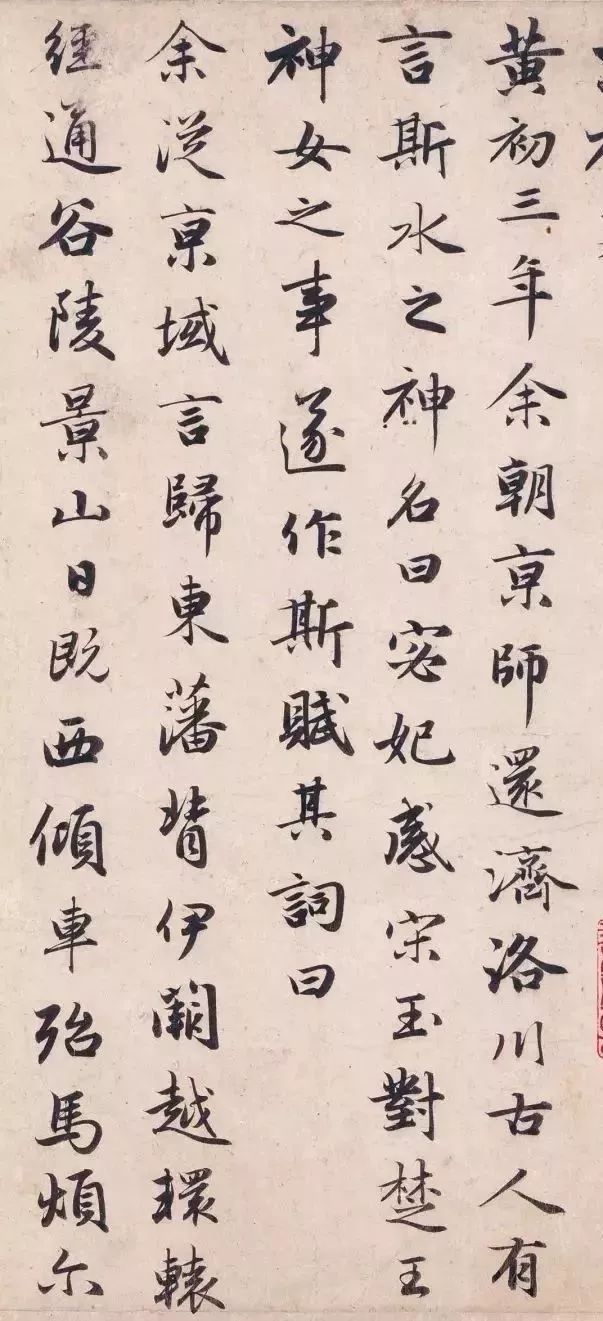 黄初三年余朝亰師還濟洛川古人有
言斯水之神名曰宓妃感宋玉對楚王
神女之事遂作斯賦其詞曰
余從亰域言歸東藩背伊闕越轘轅
經通谷陵景山日既西傾車殆馬煩尔